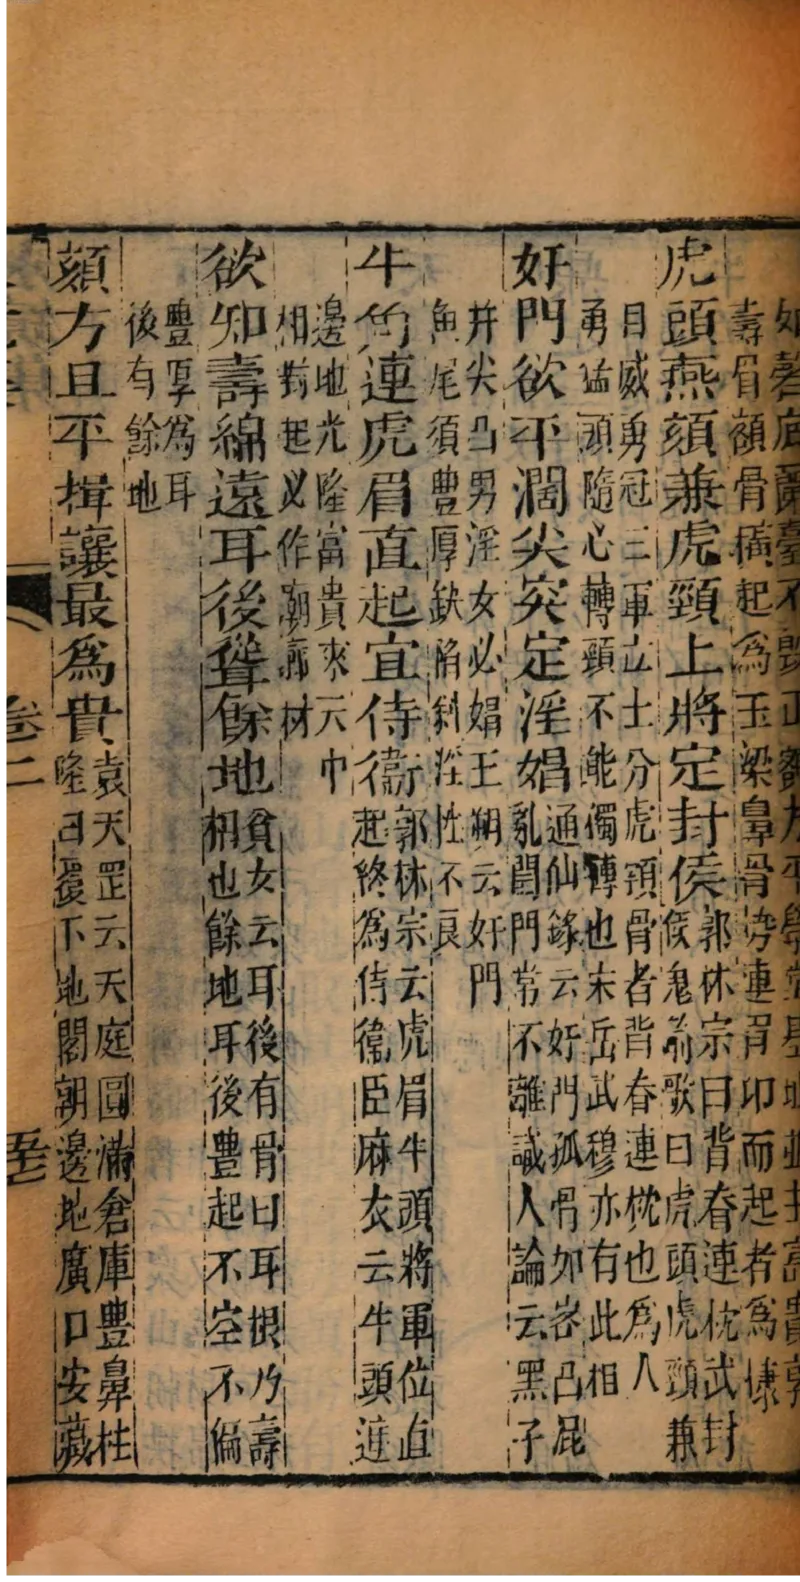 壽眉額骨橫起為玉梁皋骨勢連眉卬而起者為
虎頭燕頷兼虎頸上將定封侯
郭林宗曰背脊連枕武封
侯鬼箭歌曰虎頭虎頸兼
日威勇冠三軍立士分虎頸骨者背脊連枕也為人
勇猛頭隨心轉頸不能獨轉也宋岳武穆亦有此相
奸門欲平濶尖突定淫娼
通仙錄云奸門孤骨如峇凸屁
亂閨門常不離識人論云黑子
井尖凸男淫女必娼王朔云奸門
魚尾須豐厚缺陷斜淫性不良
牛角連虎眉直起宜侍衛
郭林宗云虎眉牛頭將軍位直
起終為侍衞臣麻衣云牛頭連
邊地光隆富貴來天巾
相對起必作朝廊材
欲知壽綿遠耳後聳餘地
貧女云耳後有骨曰耳根乃壽
相也餘地耳後豐起不空不偏
豐厚為耳
後有餘地
頷方且平揖讓最為貴
袁天罡云天庭圓滿倉庫豐鼻柱
隆日下地閣朝邊地廣口安藏
卷二